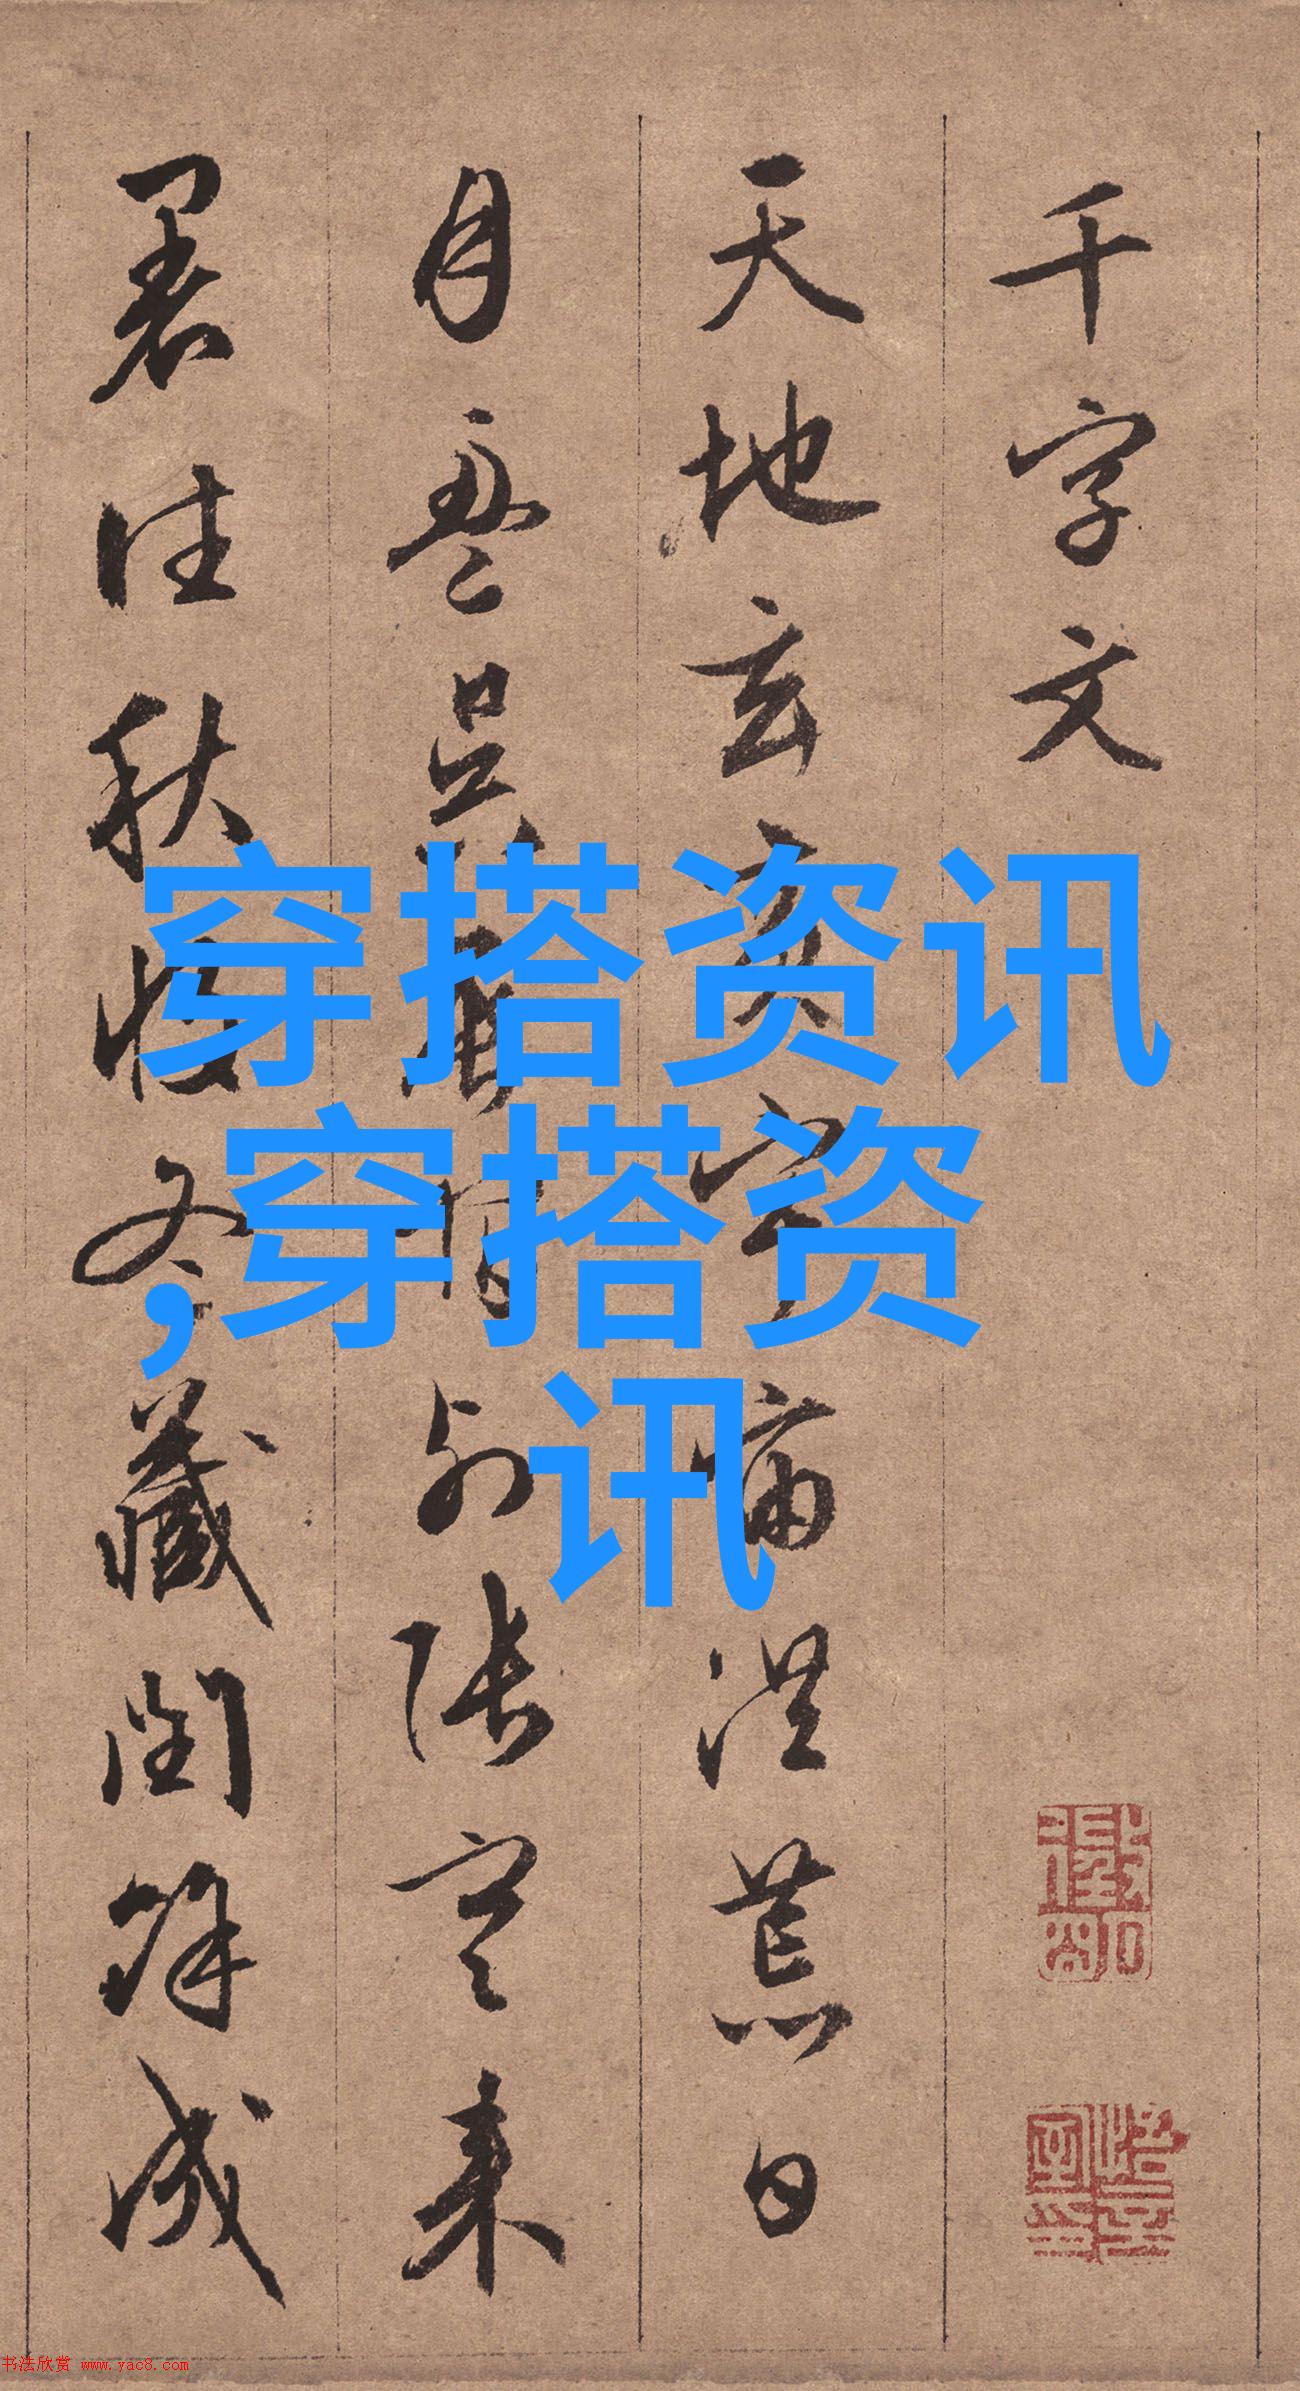 千字文
天地玄黃宇宙洪荒日
月盈昃辰宿列張寒来
暑往秋收冬藏閏餘成
穿搭资讯
,穿搭资
讯
书法欣赏 www.yac8.com